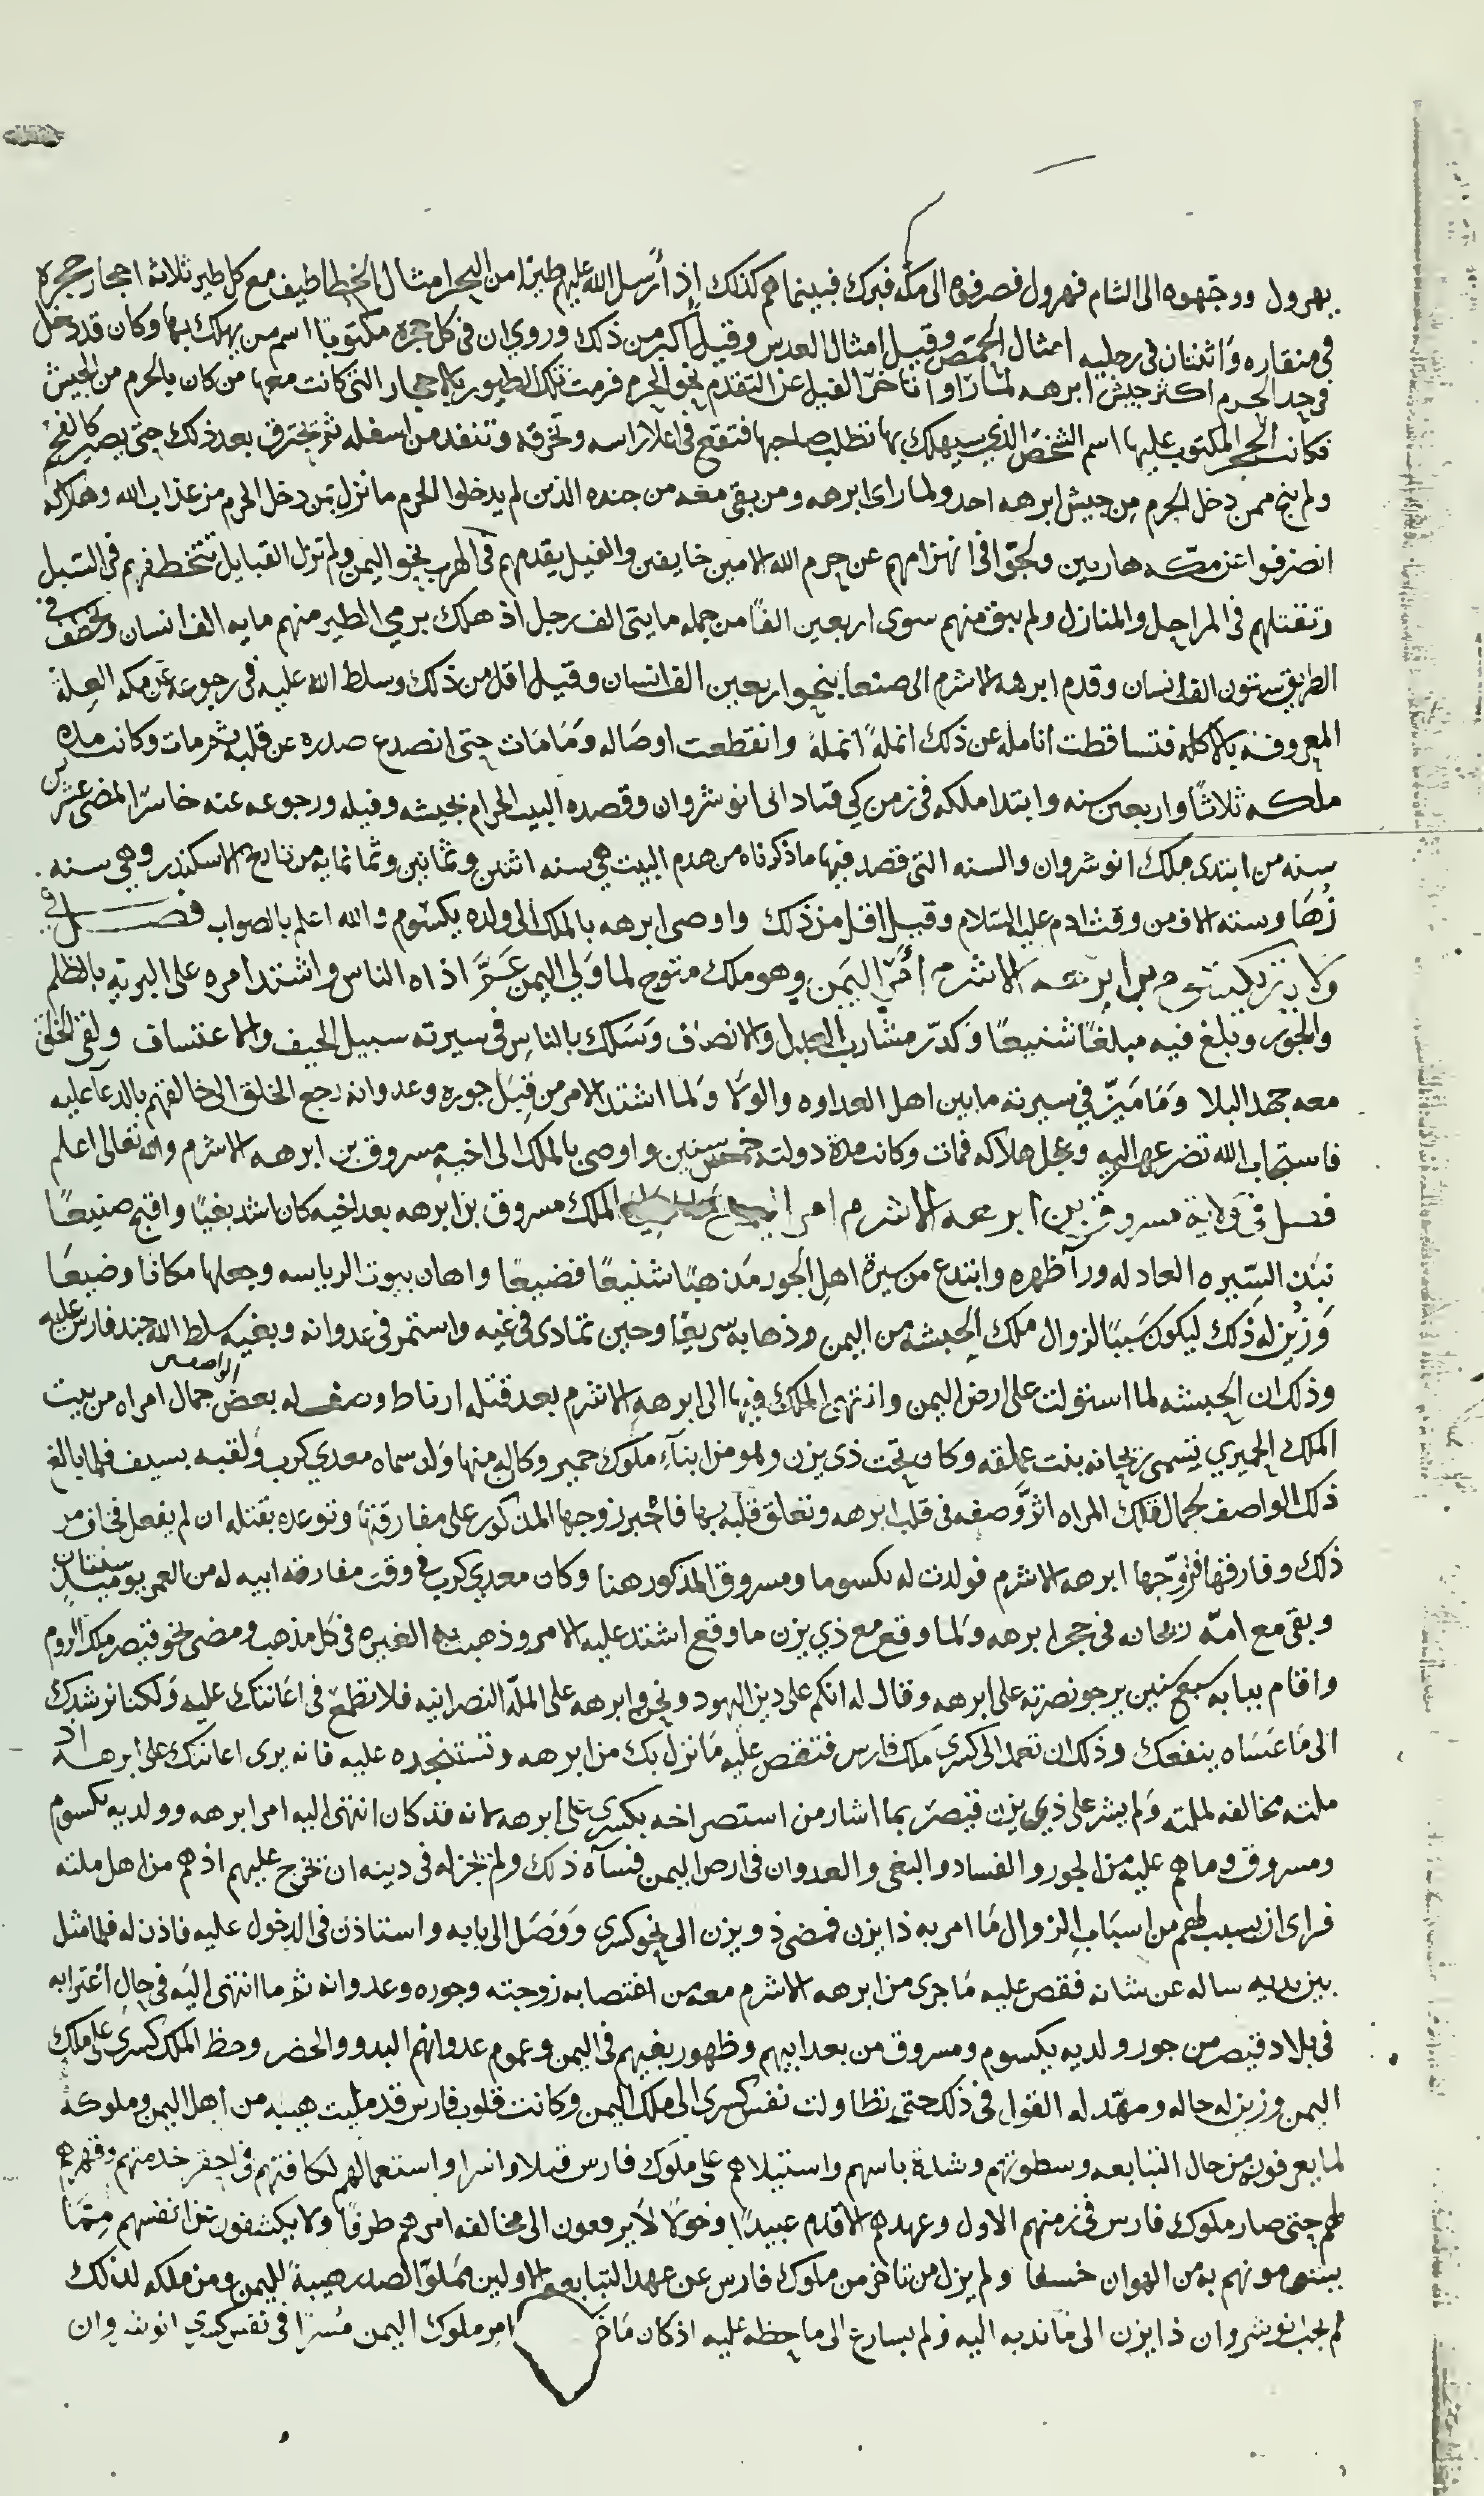 يهرول ووجهوه الى الشام فهرول فصرفوه الى مكه فبرك فبينما هم كذلك إذ أرسل الله عليهم طيرا من البحر امثال الخطاطيف مع كل طير ثلاثة احجار حجرة
في منقاره واثنتان في رجليه امثال الحمص وقيل امثال العدس وقيل أكبر من ذلك وروي ان في كل حجرة مكتوبا اسم من يهلك بها وكان قد دخل
في حد الحرم اكثر جيش ابرهه لما راوا تاخر الفيل عن التقدم نحو الحرم فرمت تلك الطيور بالاحجار التي كانت معها من كان بالحرم من الجيش
فكانت الحجر المكتوب عليها اسم الشخص الذي سيهلك بها تطلب صاحبها فتقع في اعلا راسه وتخرقه وتنفد من اسفله ثم يحترق بعد ذلك حتى يصير كالفحم
ولم ينج ممن دخل الحرم من جيش ابرهه احد ولما راى ابرهه ومن بقى معه من جنده الذين لم يدخلوا الحرم ما نزل بمن دخل الحرم من عذاب الله وهلاكه
انصرفوا عن مكه هاربين ولجوا في انهزامهم عن حرم الله الامين خايفين والفيل يقدمهم في الهرب نحو اليمن ولم تزل القبايل تتخطفهم في السبل
وتقتلهم في المراحل والمنازل ولم يبق منهم سوى اربعين الفا من جمله مايتى الف رجل اذ هلك برمي الطير منهم مايه الف انسان وتخطف في
الطريق ستون الف انسان وقدم ابرهه الاشرم الى صنعا بنحو اربعين الف انسان وقيل اقل من ذلك وسلط الله عليه في رجوعه عن مكه العلة
المعروفة بالاكله فتساقطت انامله عن ذلك انملة انملة وانقطعت اوصاله وما مات حتى انصدع صدره عن قلبه ثم مات وكانت مدة
ملكه ثلاثا واربعين سنه وابتدا ملكه في زمن كي قباد الى انوشروان وقصده البيت الحرام بجيشه وفيله ورجوعه عنه خاسرا لمضي عشرين
سنه من ابتدى ملك انوشروان والسنه التي قصد فيها ما ذكرناه من هدم البيت هي سنه اثنتين وثمانين وثمانمايه من تاريخ الاسكندر وهي سنه
زها وستة الاف من وقت ادم عليه السلام وقيل اقل من ذلك واوصى ابرهه بالملك الى ولده يكسوم والله اعلم بالصواب فصل في
ولاية يكسوم بن ابرهه الاشرم أمر اليمن وهو ملك متوج لما ولي اليمن عم اذاه الناس واشتد امره على البريه بالظلم
والجور وبلغ فيه مبلغا شنيعا وكدر مشارب العدل والانصاف وسلك بالناس في سيرته سبيل الحيف والاعتساف ولقي الخلق
معه جهد البلا وما ميز في سيرته ما بين اهل العداوه والولا ولما اشتد الامر من قبل جوره وعدوانه رجع الخلق الى خالقهم بالدعا عليه
فاستجاب الله تضرعهم اليه وعجل هلاكه فمات وكانت مدة دولته خمس سنين واوصى بالملك الى اخيه مسروق بن ابرهه الاشرم والله تعالى اعلم
فصل في ولاية مسروق بن ابرهه الاشرم امر الملك مسروق بن ابرهه بعد اخيه كان اشد بغيا واقبح صنيعا
نبذ السيره العادله ورآ ظهره وابتدع من سيرة اهل الجور مذهبا شنيعا فضيعا واهان بيوت الرياسه وجعلها مكانا وضيعا
وزين له ذلك ليكون سببا لزوال ملك الحبشه من اليمن وذهابه سريعا وحين تمادى في غيه واستمر في عدوانه وبغيه سلط الله جند فارس عليه
وذلك ان الحبشه لما استولت على ارض اليمن وانتهى الملك فيها الى ابرهه الاشرم بعد قتله ارناط وصف له بعض الواصفين جمال امراه من بيت
الملك الحميري تسمى ريحانه بنت علقمه وكان تحت ذي يزن وهو من ابنآء ملوك حمير وكان له منها ولد سماه معدي كرب ولقبه بسيف فلما بالغ
ذلك الواصف بجمال تلك المراه اثر وصفه في قلب ابرهه وتعلق قلبه بها فاجبر زوجها المذكور على مفارقتها وتوعده بقتله ان لم يفعل فخاف من
ذلك وفارقها فتزوجها ابرهه الاشرم فولدت له يكسوما ومسروق المذكور هنا وكان معدي كرب في وقت مفارقة ابيه له من العمر يوميذ سنتان
وبقى مع امه ريحانه في حجر ابرهه ولما وقع مع ذي يزن ما وقع اشتد عليه الامر وذهبت به الغيره في كل مذهب ومضى نحو قيصر ملك الروم
واقام ببابه سبع سنين يرجو نصرته على ابرهه وقال له انكم على دين اليهود ونحن وابرهه على الملة النصرانيه فلا تطمع في اعانتك عليه ولكنا نرشدك
الى ما عساه ينفعك وذلك ان تعمد الى كسرى ملك فارس فتقص عليه ما نزل بك من ابرهه وتستنجده عليه فانه يرى اعانتك على ابرهه اذ
ملته مخالفه لملته ولم يشر على ذي يزن قيصر بما اشار من استصراخه بكسرى على ابرهه الا انه قد كان انتهى اليه امر ابرهه وولديه يكسوم
ومسروق وما هم عليه من الجور والفساد والبغي والعدوان في ارض اليمن فسآه ذلك ولم يجز له في دينه ان يخرج عليهم اذ هم من اهل ملته
فراى ان يسبب لهم من اسباب الزوال ما امر به ذا يزن فمضى ذو يزن الى نحو كسرى ووصل الى بابه واستاذن في الدخول عليه فاذن له فلما مثل
بين يديه ساله عن شانه فقص عليه ما جرى من ابرهه الاشرم معه من اغتصابه زوجته وجوره وعدوانه ثم ما انتهى اليه في حال اغترابه
في بلاد قيصر من جور ولديه يكسوم ومسروق من بعد ابيهم وظهور بغيهم في اليمن وعموم عدوانهم البدو والحضر وحظ الملك كسرى على ملك
اليمن وزين له حاله ومهد له القول في ذلك حتى تطاولت نفس كسرى الى ملك اليمن وكانت قلوب فارس قد مليت هيبه من اهل اليمن وملوكه
لما يعرفونه من حال التبابعه وسطوتهم وشدة باسهم واستيلاهم على ملوك فارس قتلا واسرا واستعمالهم لكافتهم في احقر خدمتهم وقهرهم
لهم حتى صار ملوك فارس في زمنهم الاول وعهدهم الاقدم عبيدا وخولا لا يرفعون الى مخالفه امرهم طرفا ولا يكشفون عن انفسهم مما
يسومونهم به من الهوان خسفا ولم يزل من تاخر من ملوك فارس عن عهد التبابعه الاولين مملو الصدر هيبة لليمن ومن ملكه لذلك
لم يجب انوشروان ذا يزن الى ما ندبه اليه ولم يسارع الى ما حظه عليه اذ كان ماخ امر ملوك اليمن مسرا في نفس كسرى انوشروان